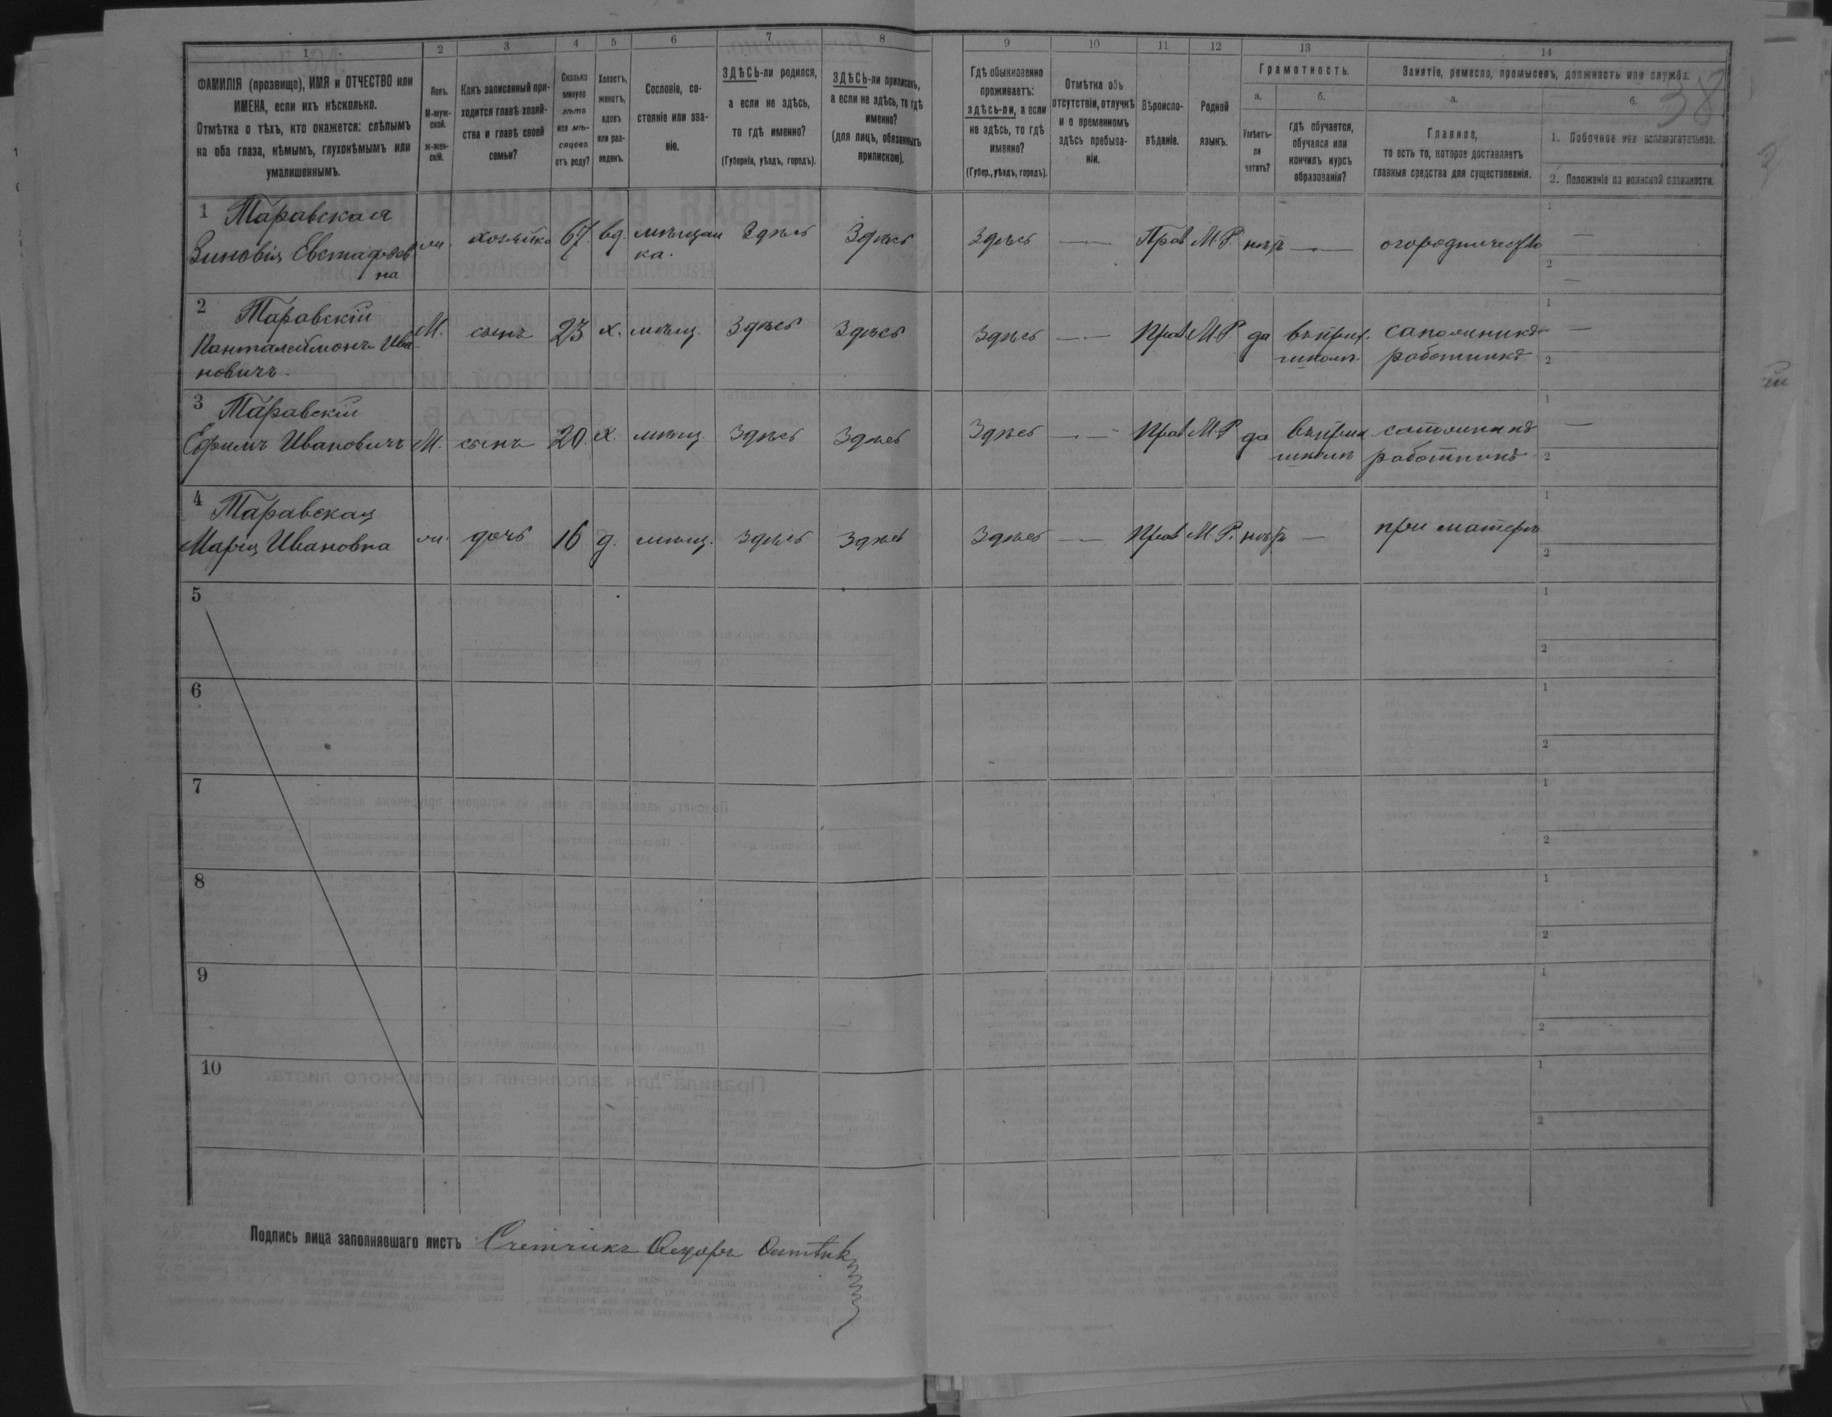 1 2 3 4 5 6 7 8 9 10 11 12 13 14
ФАМИЛІЯ (прозвище), ИМЯ и ОТЧЕСТВО или
ИМЕНА, если ихъ нѣсколько.
Отмѣтка о тѣхъ, кто окажется: слѣпымъ
на оба глаза, нѣмымъ, глухонѣмымъ или
умалишеннымъ.
Полъ.
М-муж-
ской.
ж-жен-
скій.
Какъ записанный при-
ходится главѣ хозяй-
ства и главѣ своей
семьи?
Сколько
минуло
лѣтъ
или мѣ-
сяцевъ
отъ роду?
Холостъ,
женатъ,
вдовъ
или раз-
веденъ.
Сословіе, со-
стояніе или зва-
ніе.
ЗДѢСЬ-ли родился,
а если не здѣсь,
то гдѣ именно?
(Губернія, уѣздъ, городъ).
ЗДѢСЬ-ли приписанъ,
а если не здѣсь, то гдѣ
именно?
(для лицъ, обязанныхъ
припискою).
Гдѣ обыкновенно
проживаетъ:
здѣсь-ли, а если
не здѣсь, то гдѣ
именно?
(Губер., уѣздъ, городъ).
Отмѣтка объ
отсутствіи, отлучкѣ
и о временномъ
здѣсь пребыва-
ніи.
Вѣроиспо-
вѣданіе.
Родной
языкъ.
Грамотность.
а. б.
Умѣетъ-
ли
читать?
гдѣ обучается,
обучался или
кончилъ курсъ
образованія?
Занятіе, ремесло, промыселъ, должность или служба.
38
а. б.
Главное,
то есть то, которое доставляетъ
главныя средства для существованія.
1. Побочное или вспомогательное.
2. Положеніе по воинской повинности.
1 Таравская
Зиновія Евстафіев
на
ж. хозяйка 67 вд. мѣщан
ка.
Здѣсь Здѣсь Здѣсь — Прав М.Р. нѣтъ — огородничество
1 —
2 —
2 Таравскій
Панталеймонъ Ива
новичъ.
М. сынъ 23 х. мѣщ. Здѣсь Здѣсь Здѣсь — Прав М.Р. да въ прих.
школѣ
сапожникъ
работникъ
1 —
2
3 Таравскій
Ефимъ Ивановичъ М. сынъ 20 х. мѣщ. Здѣсь Здѣсь Здѣсь — Прав М.Р. да въ прих
школѣ
сапожникъ
работникъ
1 —
2
4 Таравская
Марія Ивановна ж. дочь 16 д. мѣщ. Здѣсь Здѣсь Здѣсь — Прав М.Р. нѣтъ — при матери
1
2
5
1
2
6
1
2
7
1
2
8
1
2
9
1
2
10
1
2
Подпись лица заполнявшаго листъ Счетчикъ